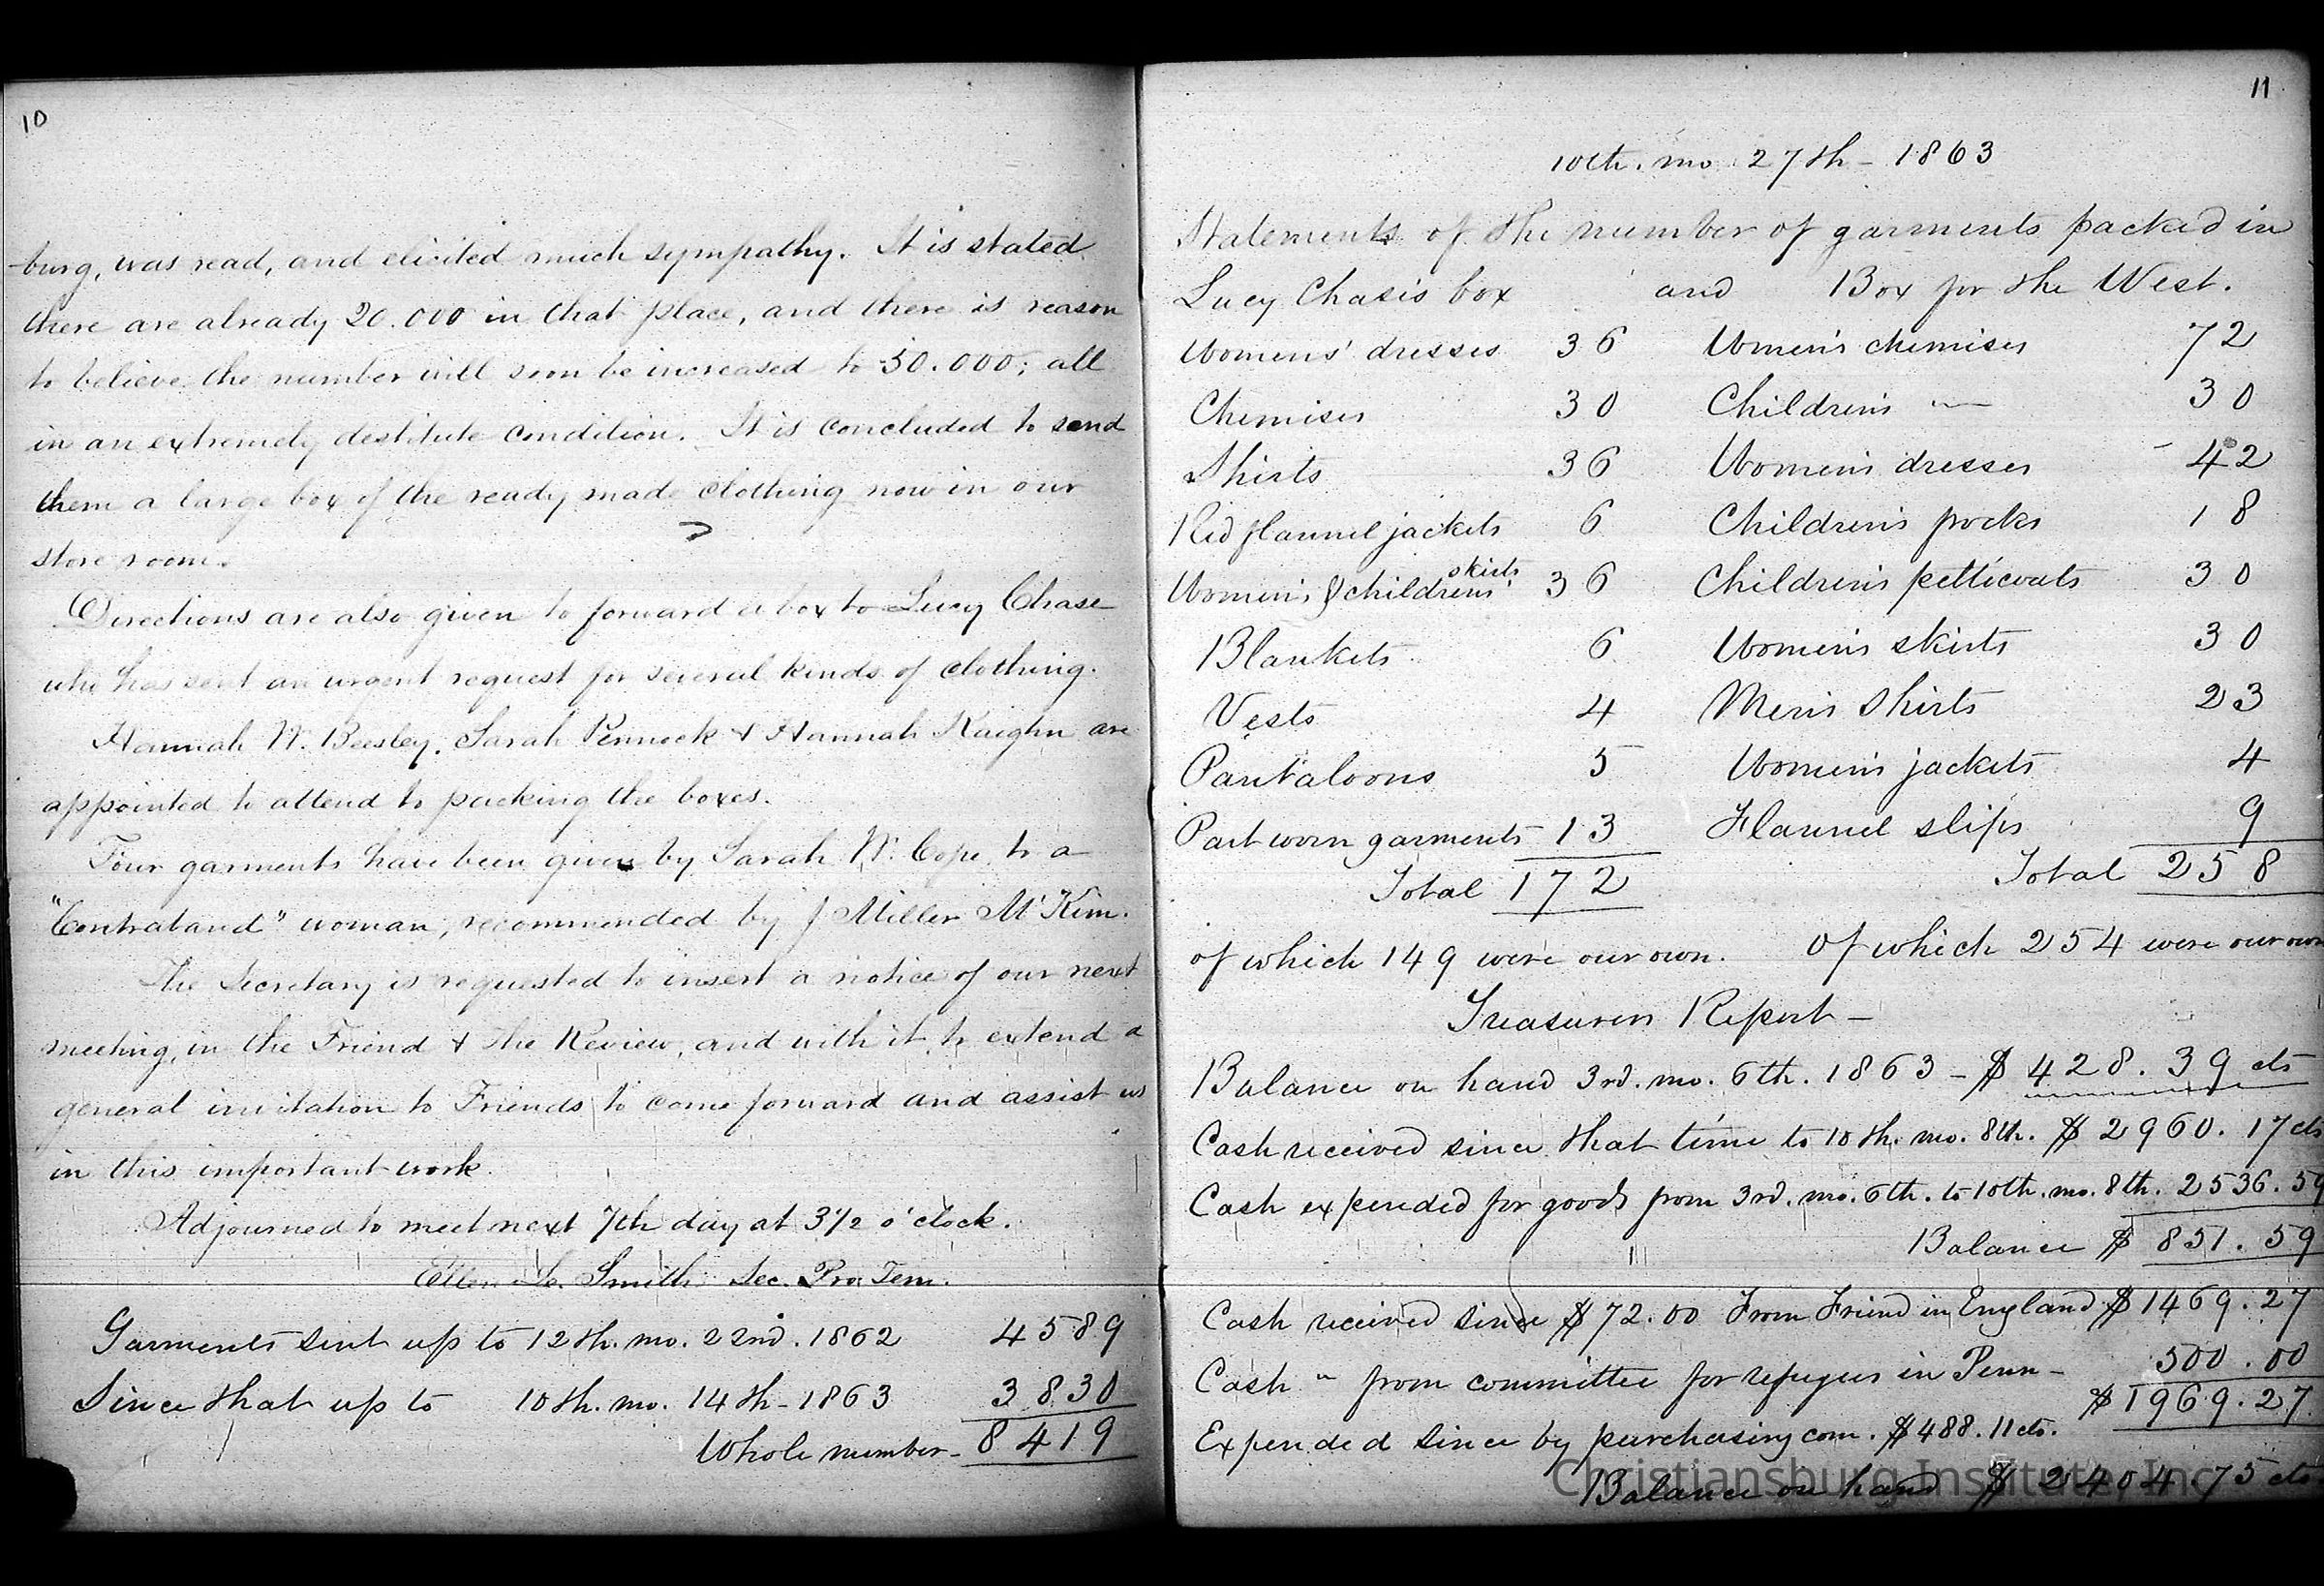 10
burg, was read, and elicited much sympathy. It is stated
there are already 20.000 in that place, and there is reason
to believe the number will soon be increased to 50.000; all
in an extremely destitute condition. It is concluded to send
them a large box of the ready made clothing now in our
store room.
Directions are also given to forward a box to Lucy Chase
who has sent an urgent request for several kinds of clothing.
Hannah W. Beesley, Sarah Pennock & Hannah Kaighn are
appointed to attend to packing the boxes.
Four garments have been given by Sarah W. Cope, to a
"Contraband" woman, recommended by J Miller McKim.
The Secretary is requested to insert a notice of our next
meeting, in the Friend & the Review, and with it to extend a
general invitation to Friends to come forward and assist us
in this important work.
Adjourned to meet next 7th day at 3 1/2 o'clock.
Ellen L. Smith Sec. Pro. Tem.
Garments sent up to 12th. mo. 22nd. 1862 4589
Since that up to 10th. mo. 14th - 1863 3830
Whole number - 8419
11
10th. mo 27th - 1863
Statements of the number of garments packed in
Lucy Chase's box and Box for the West.
Womens' dresses 36 Women's chemises 72
Chemises 30 Children's " 30
Shirts 36 Women's dresses 42
Red flannel jackets 6 Children's frocks 18
Women's & children's skirts 36 Children's petticoats 30
Blankets 6 Women's skirts 30
Vests 4 Men's shirts 23
Pantaloons 5 Women's jackets 4
Part worn garments 13 Flannel slips 9
Total 172 Total 258
of which 149 were our own. Of which 254 were our own
Treasurers Report -
Balance on hand 3rd. mo. 6th. 1863 - $ 428.39 cts
Cash received since that time to 10th. mo. 8th. $ 2960.17 cts
Cash expended for goods from 3rd. mo. 6th. to 10th. mo. 8th. 2536.59
Balance $ 851.59
Cash received since $72.00 From Friend in England $1469.27
Cash " from committee for refugees in Penn - 500.00
$1969.27
Expended since by purchasing com. $488.11 cts.
Balance on hand $ 2404.75 cts
Christiansburg Institute, Inc.